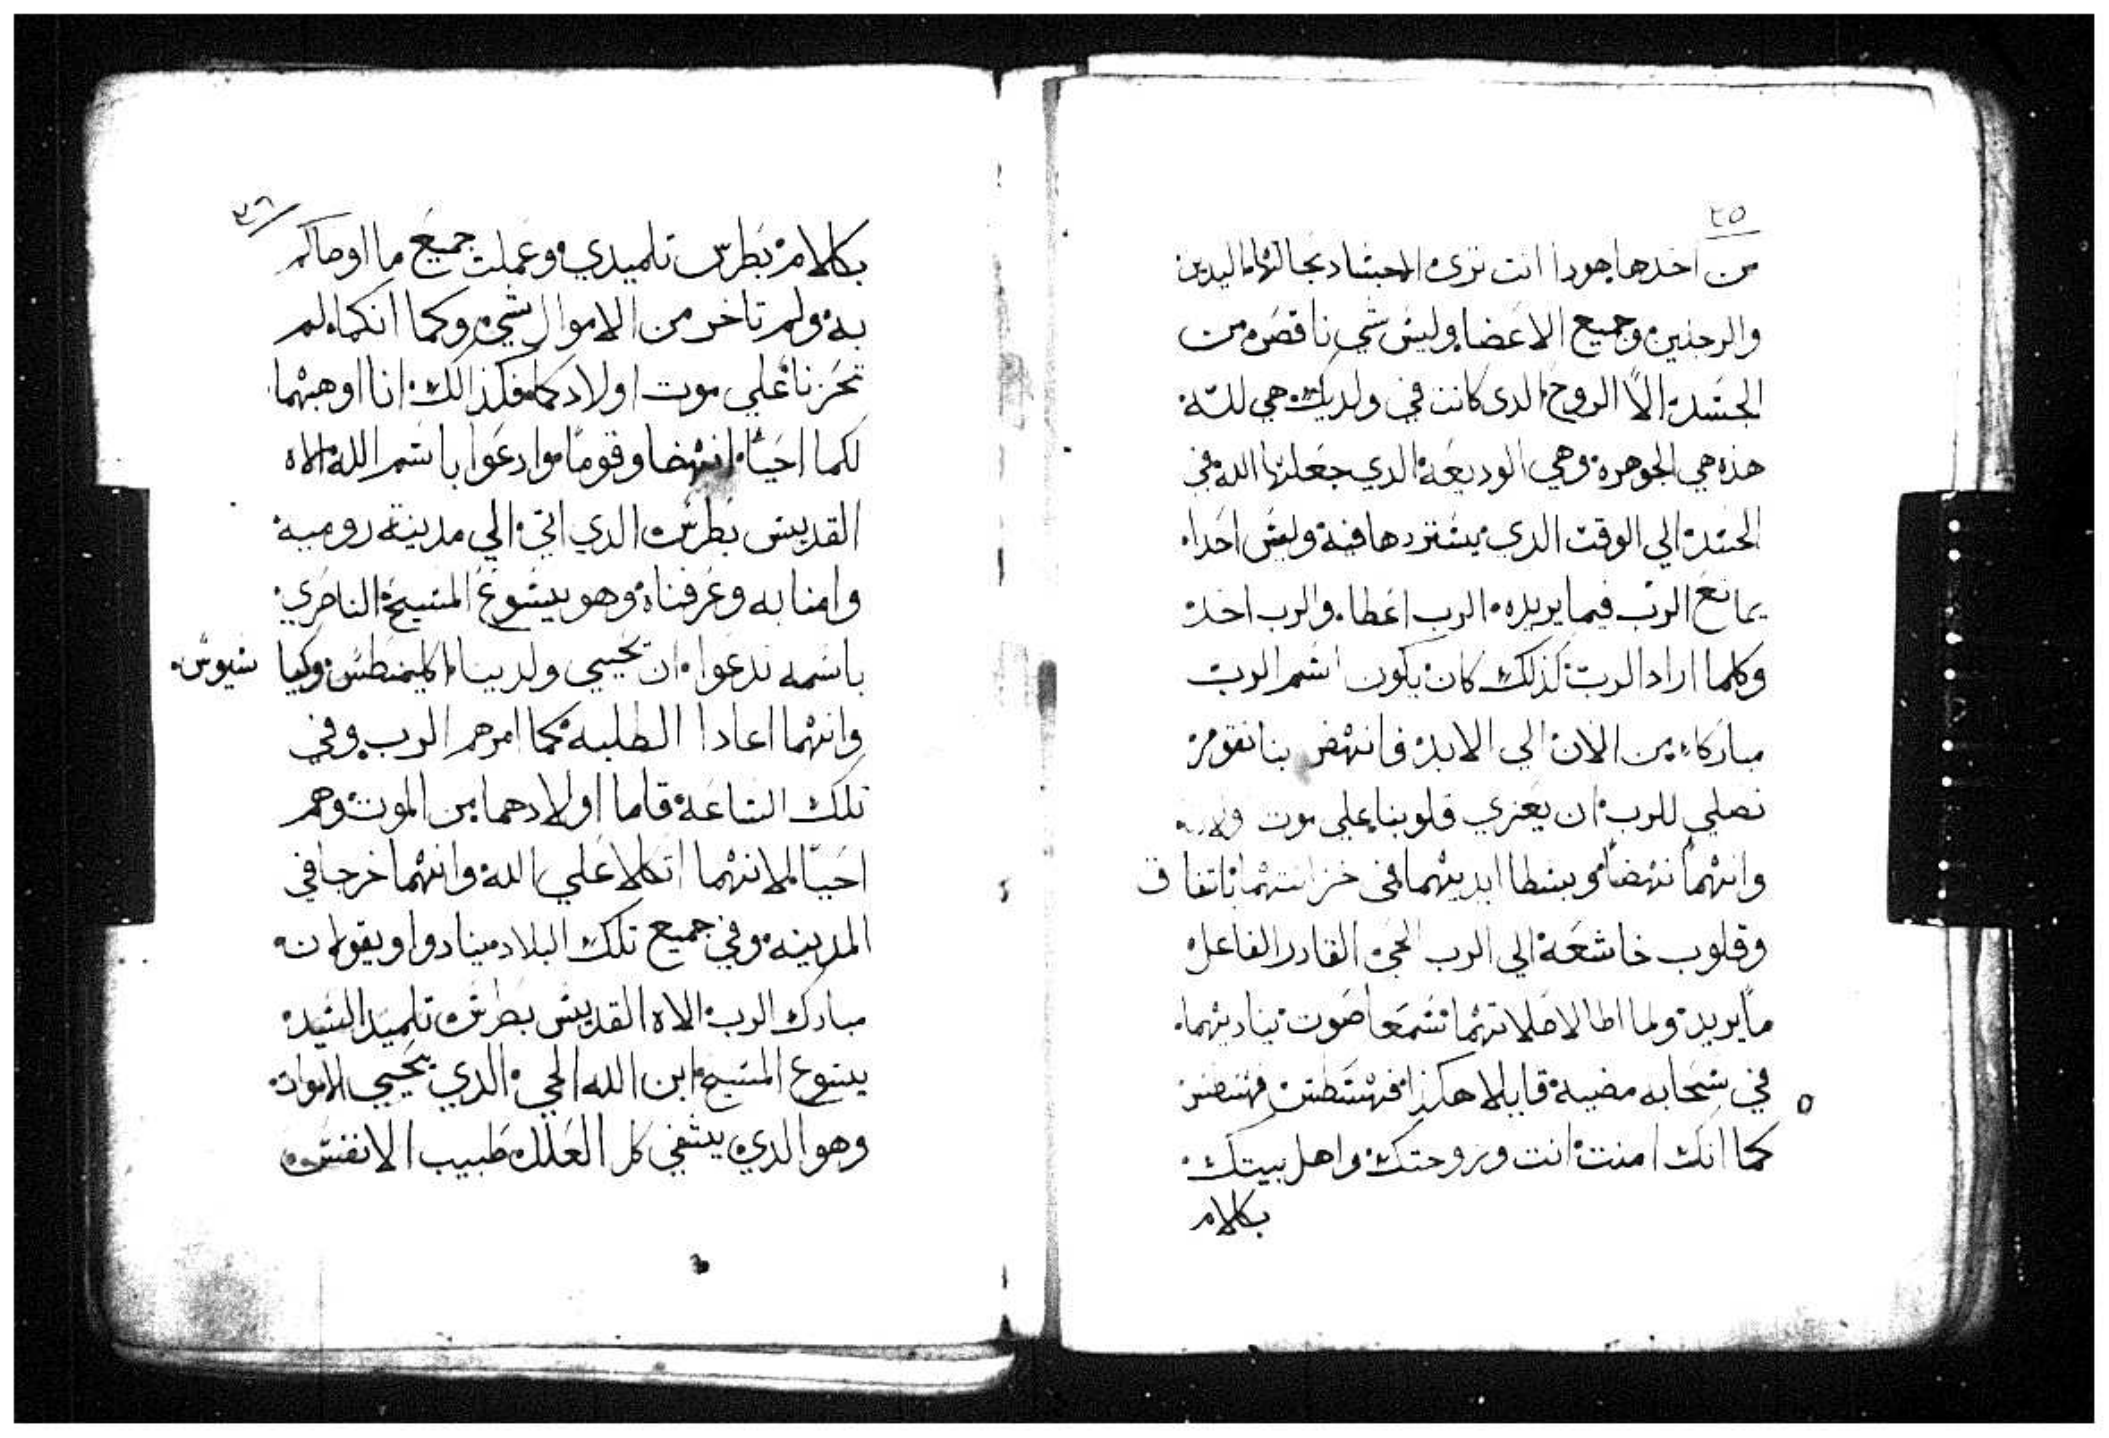 ٢٥
من اخدها هودا انت ترى الاجساد بحالتها اليدين
والرجلين وجميع الاعضا وليس شي ناقصه من
الجسد الا الروح الدى كانت في ولديك هي لله
هذه هي الجوهرة وهي الوديعة الدي جعلتها الله في
الجسد الي الوقت الدي يسترد ها فيه وليس احدا
يمانع الرب فيما يريده الرب اعطا والرب اخد
وكلما اراد الرب كذلك كان يكون اسم الرب
مباركا من الان الي الابد فانهض بنا نقوم
نصلي للرب ان يعزي قلوبنا علي موت
وانهما نهضا وبسطا ايديهما في خزانتهما باتفاق
وقلوب خاشعة الي الرب الحي القادر الفاعل
ما يريد ولما اطالا صلاتهما سمعا صوت يناديهما
في سحابه مضيه قايلا هكذا فهسطس فهسطس
كما انك امنت انت وزوجتك واهل بيتك
بكلام
٢٦
بكلام بطرس تلميدي وعملت جميع ما اوصاكم
به ولم تاخر من الاموال شي وكما انكما لم
تحزنا علي موت اولادكما فكذالك انا اوهبهما
لكما احيا انهضا وقوما وادعوا باسم الله الاه
القديس بطرس الدي اتي الي مدينة رومية
وامنا به وعرفناه وهو يسوع المسيح الناصري
باسمه ندعوا ان تحيي ولدينا اكليمنطس وكيا سيوس
وانهما اعادا الطلبه كما امرهم الرب وفي
تلك الساعة قاما اولادهما من الموت وهم
احيا لانهما اتكلا علي الله وانهما خرجا في
المدينه وفي جميع تلك البلاد ينادوا ويقولان
مبارك الرب الاه القديس بطرس تلميد السيد
يسوع المسيح ابن الله الحي الدي يحيي الاموات
وهو الدي يشفي كل العلل طبيب الانفس